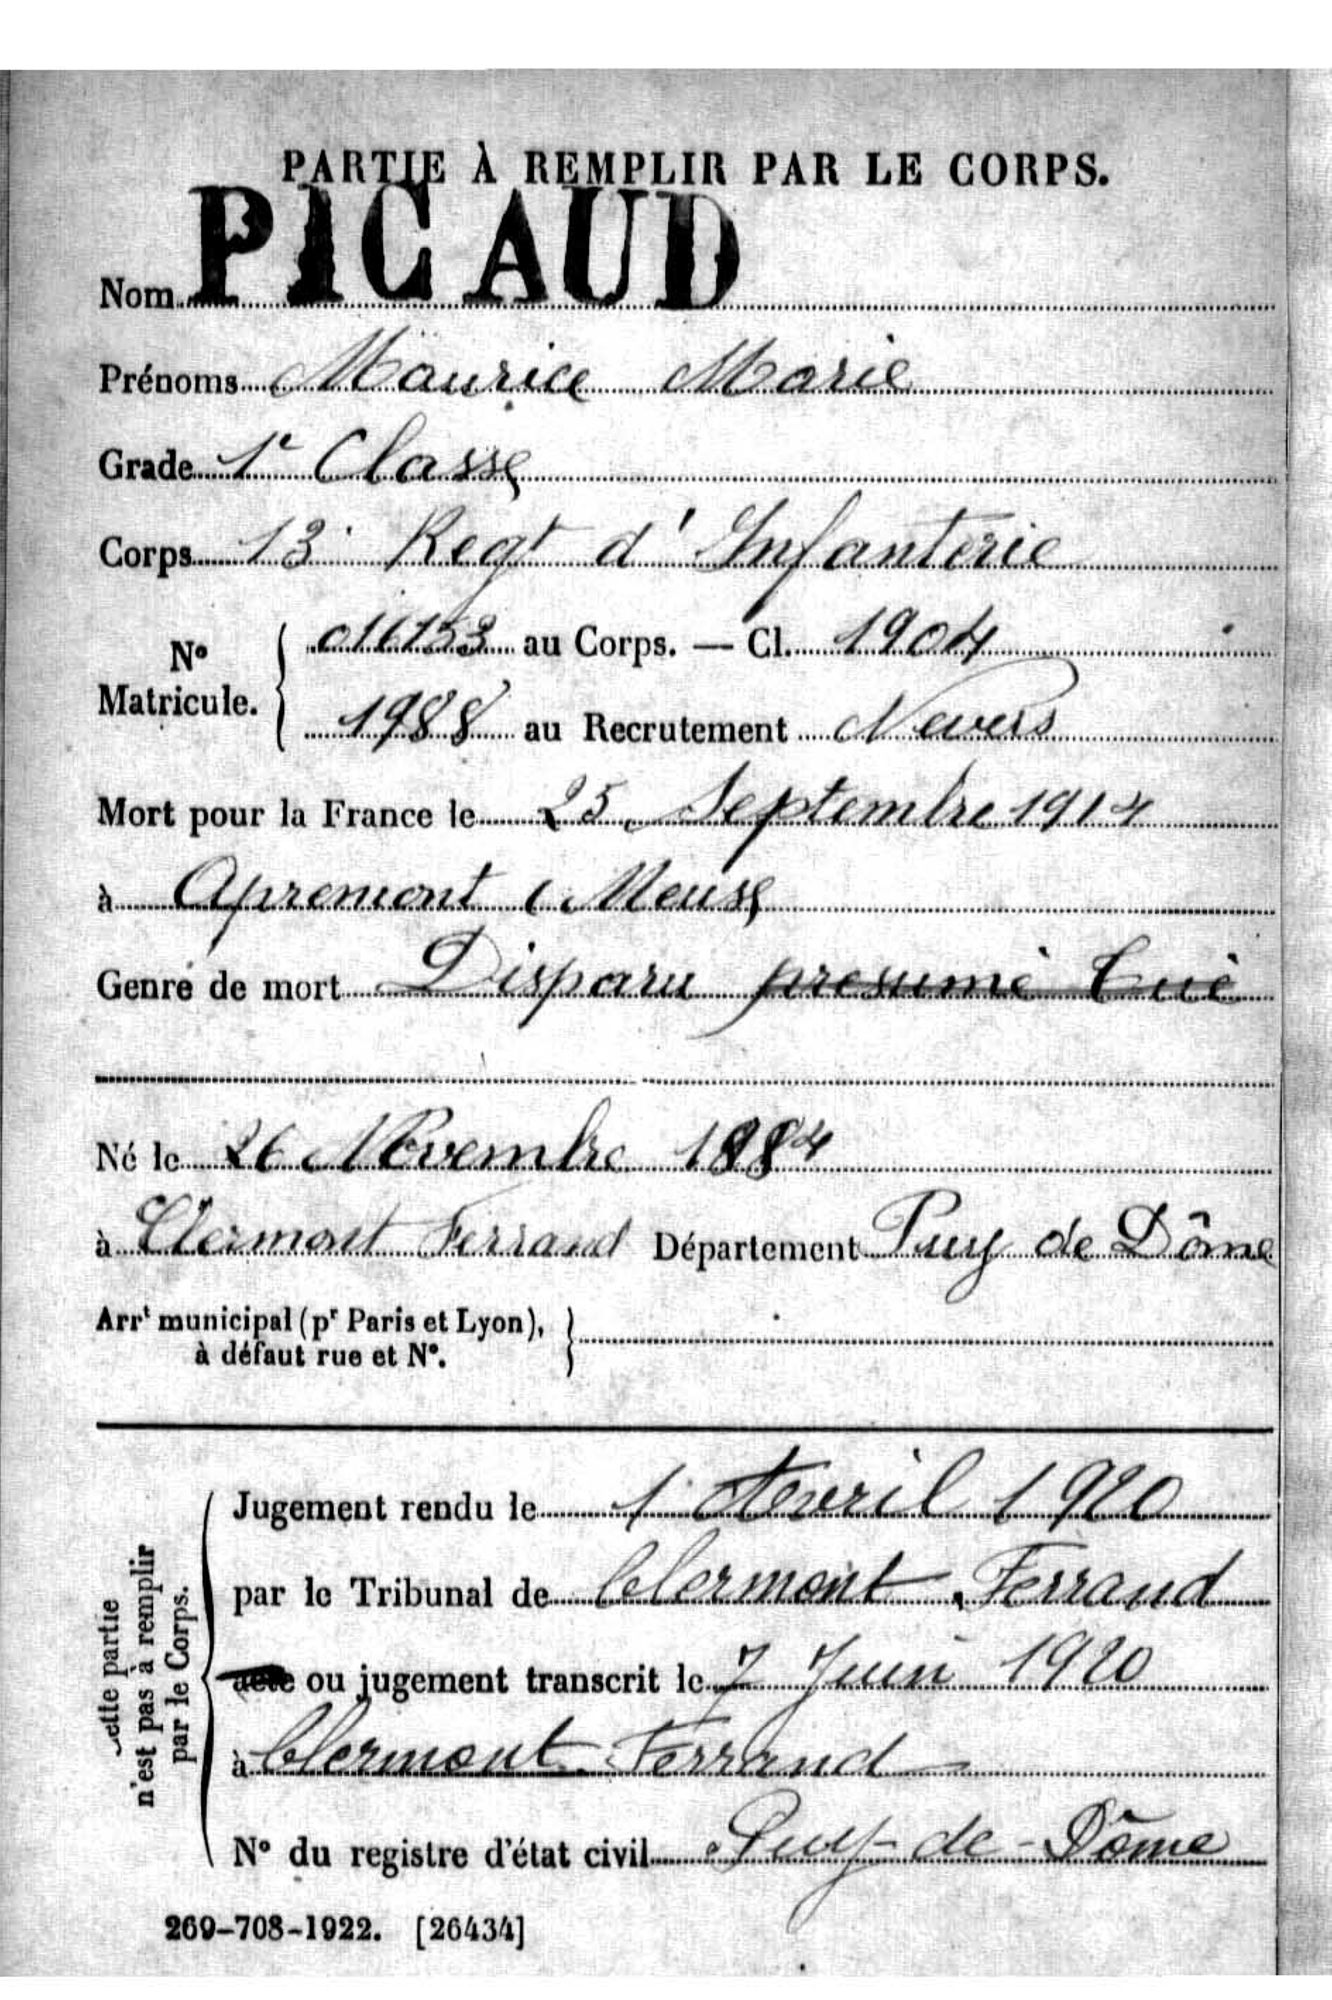 PARTIE À REMPLIR PAR LE CORPS.
Nom PICAUD
Prénoms Maurice Marie
Grade 1e Classe
Corps 13 Regt d'Infanterie
No Matricule. 016153 au Corps. — Cl. 1904
1988 au Recrutement Nevers
Mort pour la France le 25 Septembre 1914
à Apremont (Meuse
Genre de mort Disparu présumé tué
Né le 26 Novembre 1884
à Clermont Ferrand Département Puy de Dôme
Arrt municipal (pr Paris et Lyon),
à défaut rue et No.
Cette partie
n'est pas à remplir
par le Corps.
Jugement rendu le 1 Avril 1920
par le Tribunal de Clermont Ferrand
acte ou jugement transcrit le 7 Juin 1920
à Clermont Ferrand
No du registre d'état civil Puy-de-Dôme
269-708-1922. [26434]